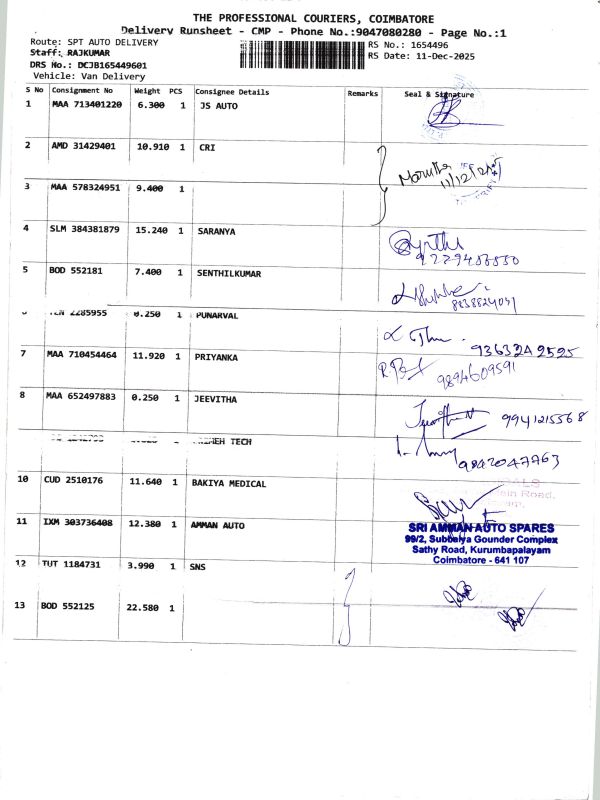 THE PROFESSIONAL COURIERS, COIMBATORE
Delivery Runsheet - CMP - Phone No.:9047080280 - Page No.:1
Route: SPT AUTO DELIVERY
RS No.: 1654496
Staff: RAJKUMAR
RS Date: 11-Dec-2025
DRS No.: DCJB165449601
Vehicle: Van Delivery
S No Consignment No Weight PCS Consignee Details Remarks Seal & Signature
1 MAA 713401220 6.300 1 JS AUTO
2 AMD 31429401 10.910 1 CRI
3 MAA 578324951 9.400 1
4 SLM 384381879 15.240 1 SARANYA
5 BOD 552181 7.400 1 SENTHILKUMAR
2285955 0.250 1 PUNARVAL
9363242525
7 MAA 710454464 11.920 1 PRIYANKA
9894609591
8 MAA 652497883 0.250 1 JEEVITHA
9941215568
TECH
9842047763
10 CUD 2510176 11.640 1 BAKIYA MEDICAL
11 IXM 303736408 12.380 1 AMMAN AUTO
SRI AMMAN AUTO SPARES
99/2, Subbaiya Gounder Complex
Sathy Road, Kurumbapalayam
Coimbatore - 641 107
12 TUT 1184731 3.990 1 SNS
13 BOD 552125 22.580 1